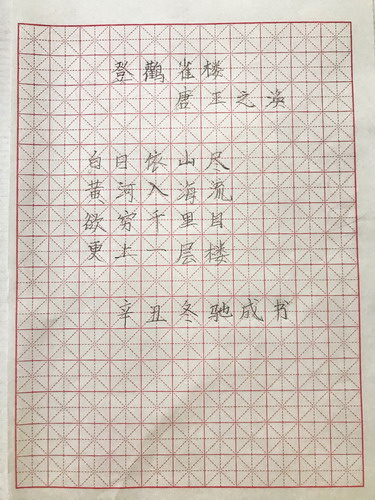 登鹳雀楼
唐王之涣
白日依山尽
黄河入海流
欲穷千里目
更上一层楼
辛丑冬驰成书